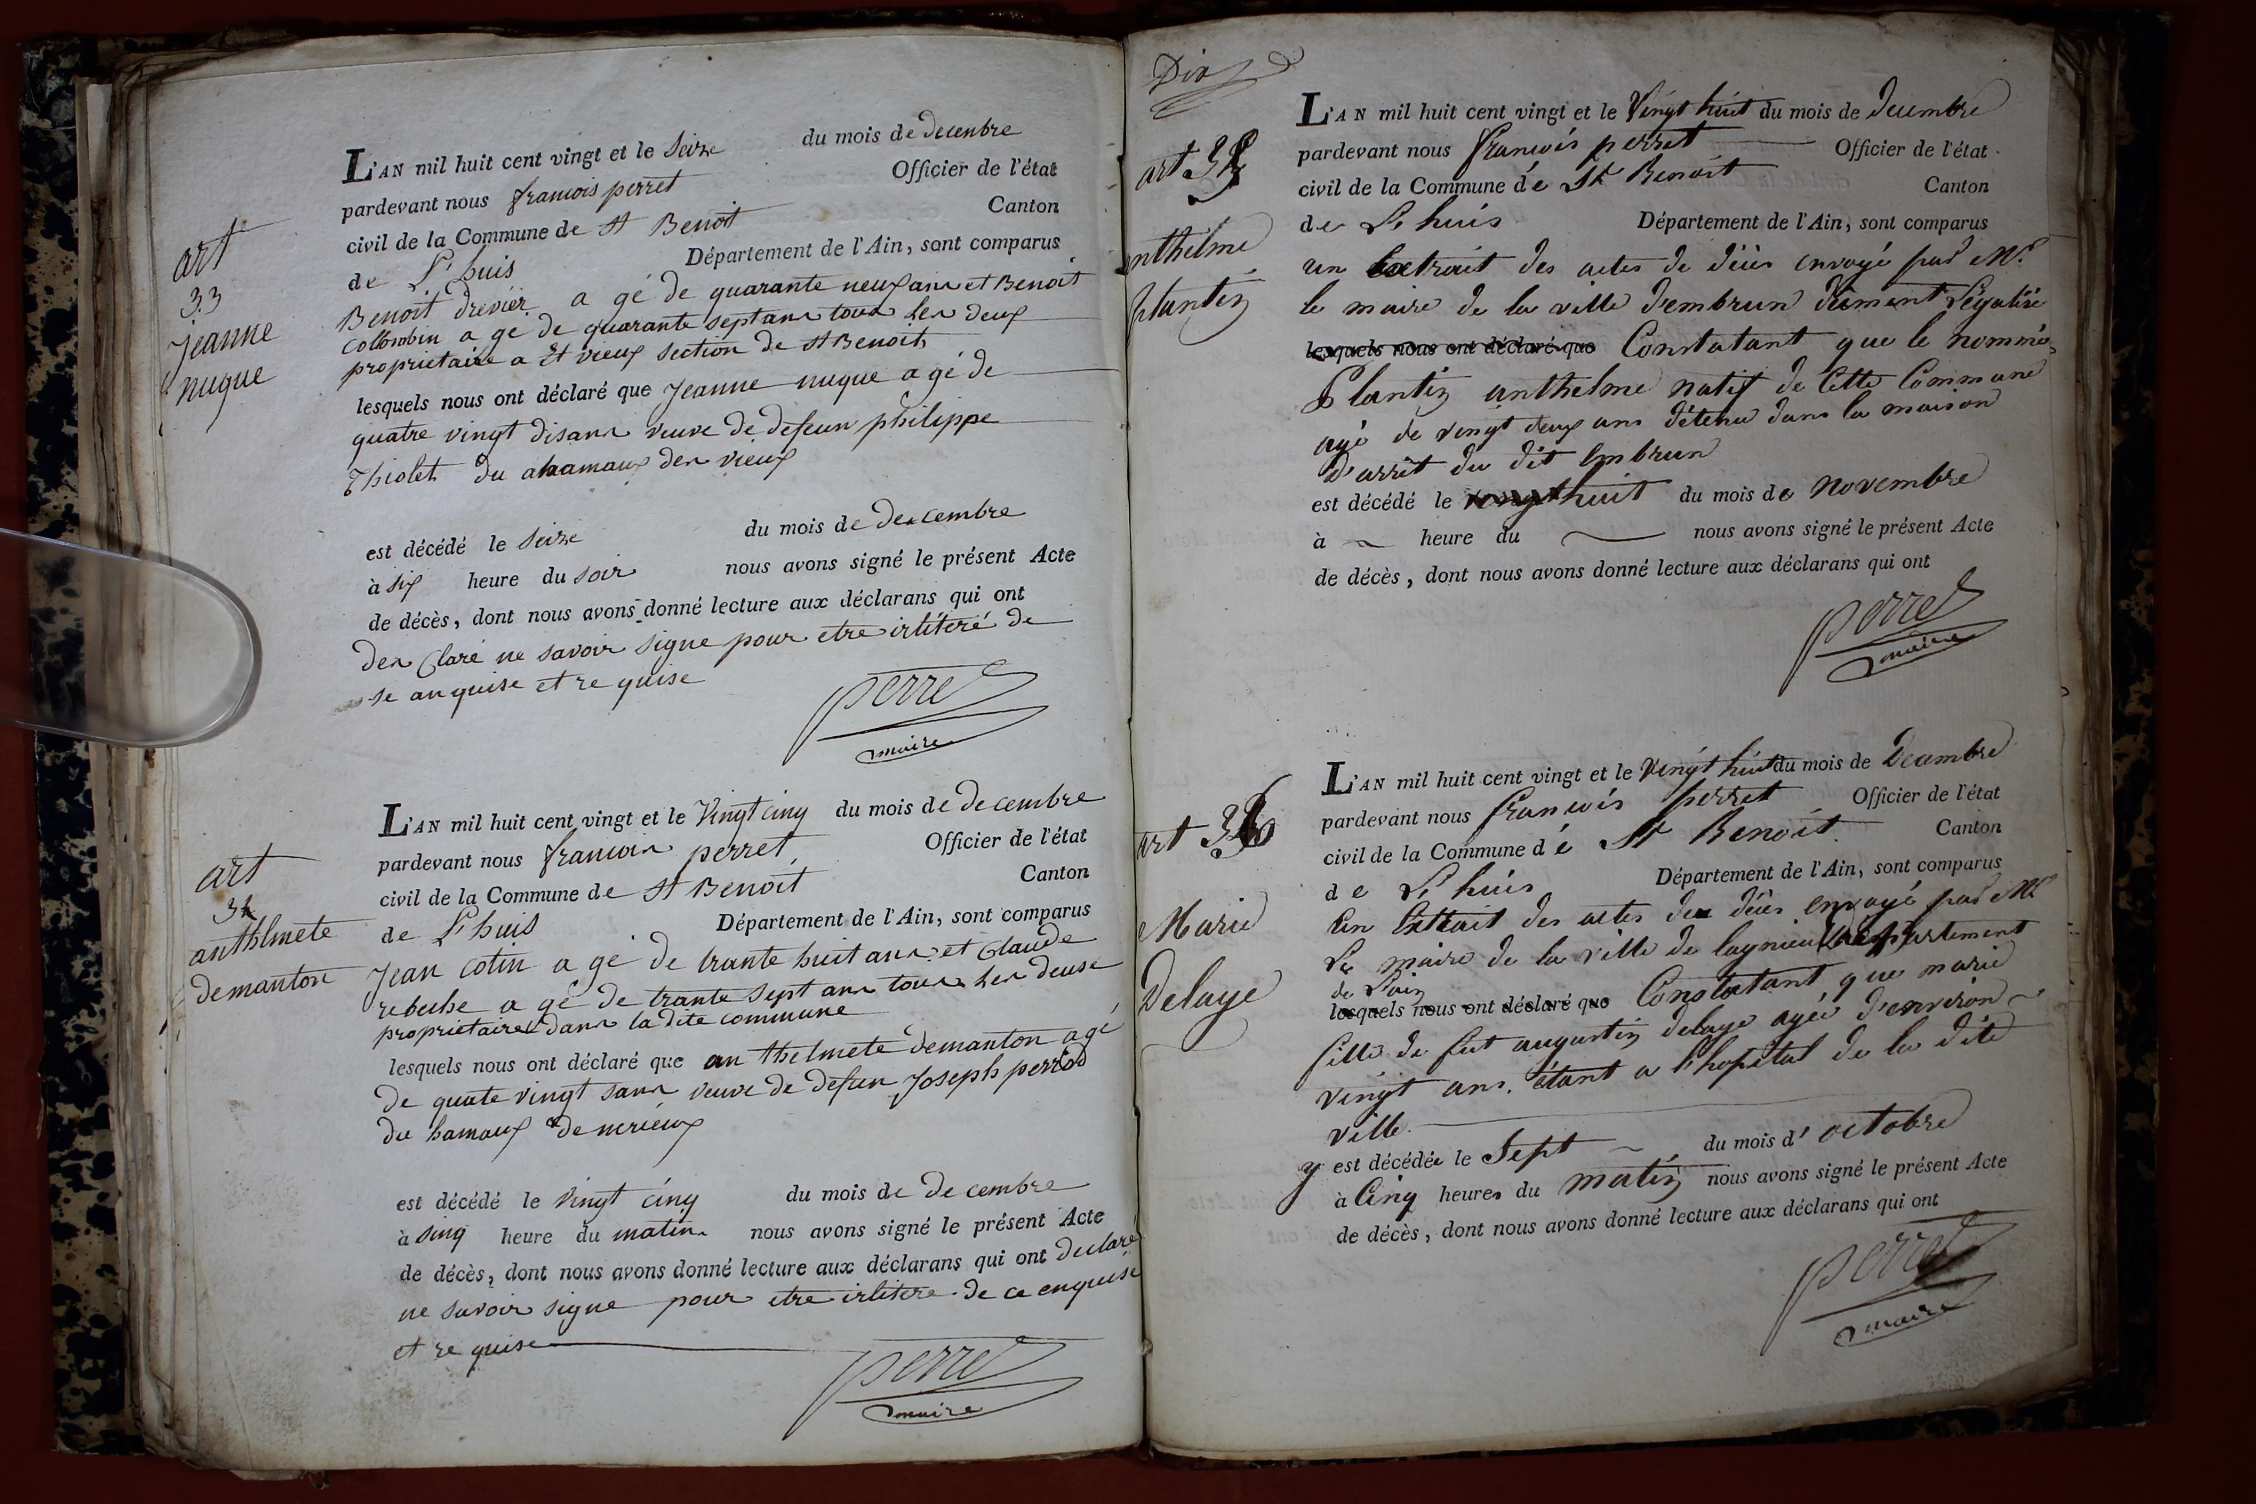 art
33
jeanne
nuque
L'AN mil huit cent vingt et le Seize du mois de decenbre
pardevant nous francois perret Officier de l'état
civil de la Commune de st Benoit Canton
de L'huis Département de l'Ain, sont comparus
Benoit drevier a gé de quarante neuf ans et Benoit
Collombin a gé de quarante sept ans tous les deux
proprietaire a Et vieux section de st Benoit
lesquels nous ont déclaré que Jeanne nuque a gé de
quatre vingt disans veuve de defeun philippe
Thiolet du ahamaux des vieux
est décédé le seize du mois de descembre
à six heure du soir nous avons signé le présent Acte
de décès, dont nous avons donné lecture aux déclarans qui ont
des Claré ne savoir signe pour etre irlitéré de
se anquise et re quise
perret
maire
art
34
anthlmete
demanton
L'AN mil huit cent vingt et le Vingt cinq du mois de decembre
pardevant nous francois perret Officier de l'état
civil de la Commune de st Benoit Canton
de L'huis Département de l'Ain, sont comparus
Jean Cotin a gé de trante huit ans et Claude
rebuhe a gé de trante sept ans tous les deuse
proprietaires dans la dite commune
lesquels nous ont déclaré que an thelmete demanton agé
de quate vingt sans veuve de defeun Joseph perrod
du hamaux de merieux
est décédé le vingt cinq du mois de de cembre
à sinq heure du matin nous avons signé le présent Acte
de décès, dont nous avons donné lecture aux déclarans qui ont declaré
ne savoir signe pour etre irlitere de ce enquise
et re quise
perret
maire
Dix
art 35
nthelme
plantin
L'AN mil huit cent vingt et le Vingt huit du mois de decembre
pardevant nous francois perret Officier de l'état
civil de la Commune dé St Benoit Canton
de L'huis Département de l'Ain, sont comparus
un Extrait des actes de décès envoyé par Mr
le maire de la ville d'embrun dument Légalisé
lesquels nous ont déclaré que Constatant que le nommé
Plantin anthelme natif de Cette Commune
agé de vingt deux ans détenu dans la maison
d'arrêt du dit Embrun
est décédé le vingt huit du mois de novembre
à heure du nous avons signé le présent Acte
de décès, dont nous avons donné lecture aux déclarans qui ont
perret
maire
art 36
Marie
Delaye
L'AN mil huit cent vingt et le Vingt huit du mois de Decembre
pardevant nous francois perret Officier de l'état
civil de la Commune dé St Benoit Canton
de L'huis Département de l'Ain, sont comparus
Un Extrait des actes de décès envoyé par Mr
Le maire de la ville de lagnieu Département
de l'ain
lesquels nous ont déclaré que Constatant que marie
fille de feut augustin delaye agée d'environ
vingt ans, étant a l'hopital de la dite
ville
y est décédée le Sept du mois d'octobre
à Cinq heures du matin nous avons signé le présent Acte
de décès, dont nous avons donné lecture aux déclarans qui ont
perret
maire